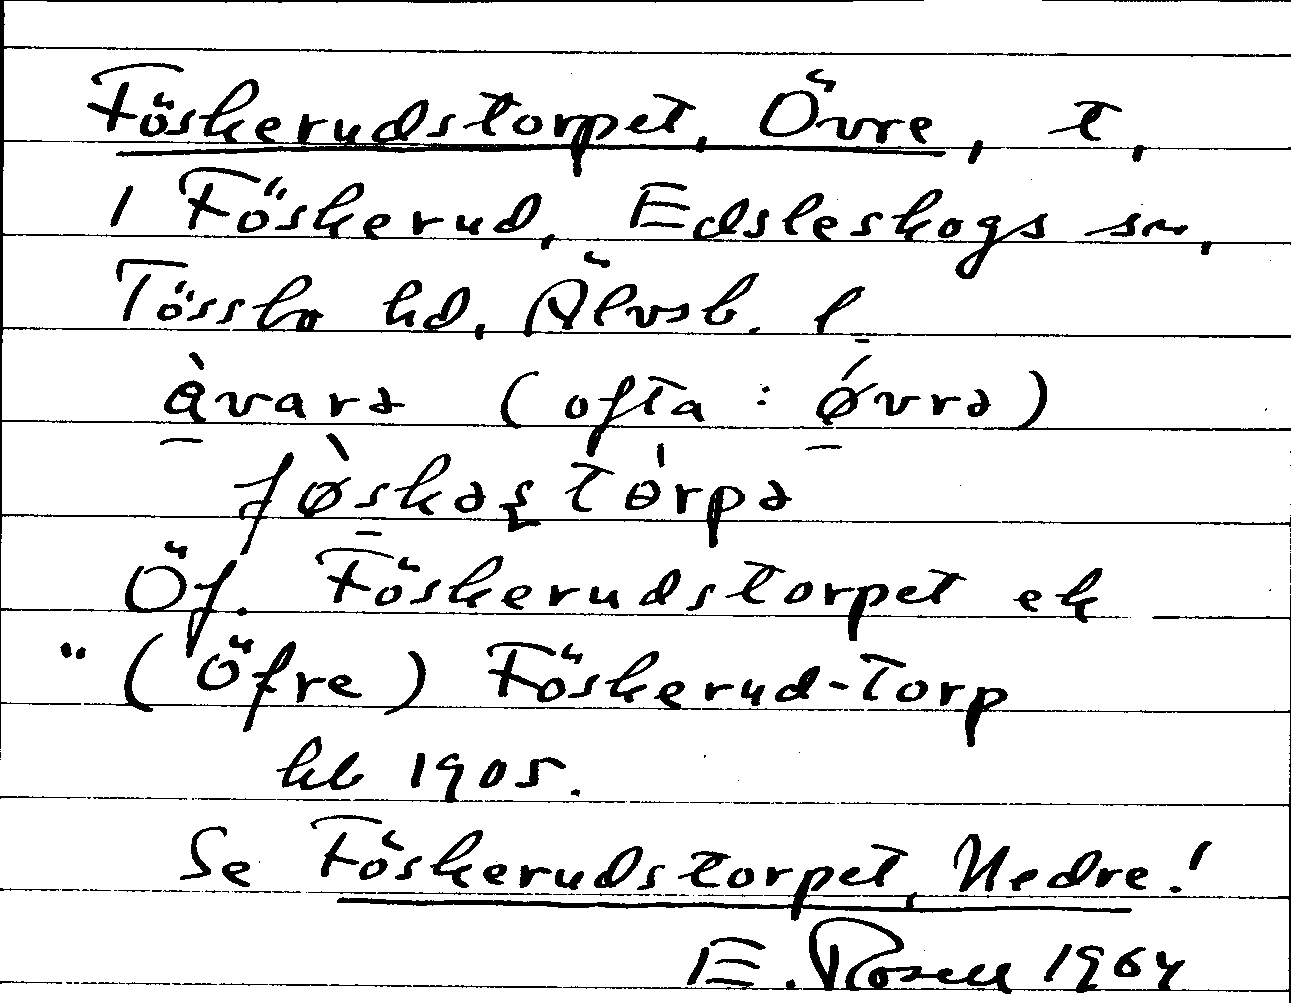 Föskerudstorpet, Övre, t,
i Föskerud, Edsleskogs sn,
Tössbo hd, Älvsb. l.
å̀varə (ofta: ǿvrə)
fø̀skəʂtɵ́rpə
Öf. Föskerudstorpet ek
" (Öfre) Föskerud-Torp
kb 1905.
Se Föskerudstorpet, Nedre!
E. Rosell 1964